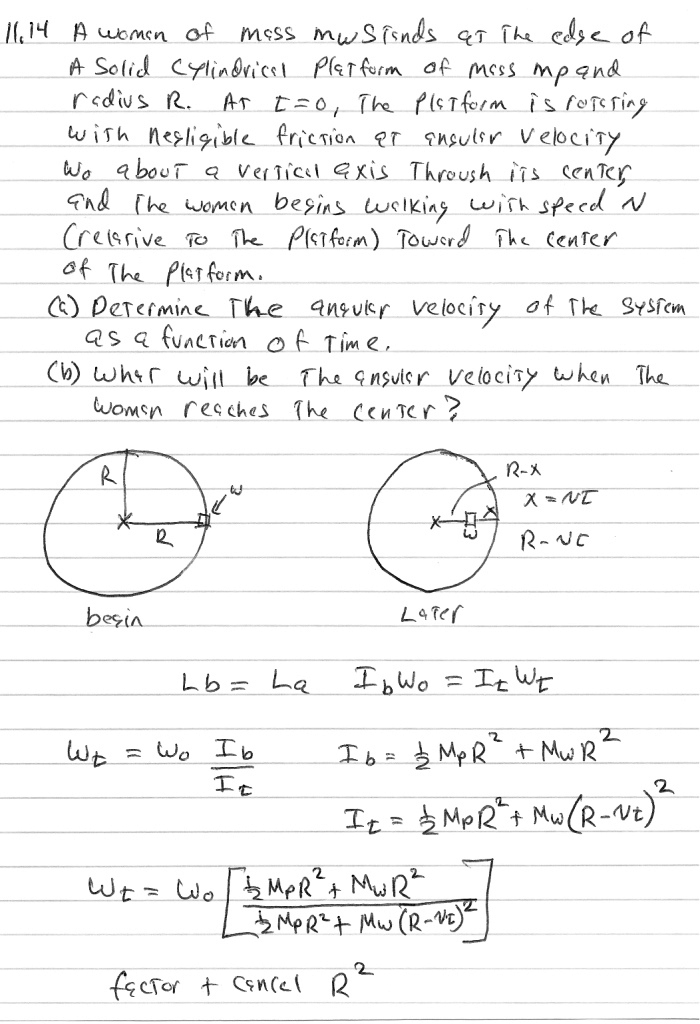 11.14 A woman of mass mw Stands at The edge of
A Solid Cylindrical Platform of mass mp and
radius R. At t=0, The Platform is rotating
with negligible friction at angular velocity
ω₀ about a vertical axis Through its center,
and The woman begins walking with speed v
(relative To The Platform) Toward The center
of The Platform.
(a) Determine The angular velocity of The System
as a function of Time.
(b) What will be The angular velocity when The
woman reaches The center?
R
R
w
R-x
x = vt
R-vt
x
w
begin
Later
Lb = La   I_b ω₀ = I_t ω_t
ω_t = ω₀ I_b / I_t
I_b = ½ MpR² + MwR²
I_t = ½ MpR² + Mw(R-vt)²
ω_t = ω₀ [ (½ MpR² + MwR²) / (½ MpR² + Mw(R-vt)²) ]
factor + cancel R²